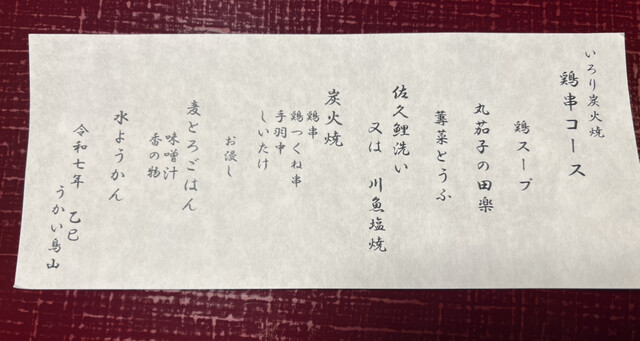 いろり炭火焼
鶏串コース
鶏スープ
丸茄子の田楽
蓴菜とうふ
佐久鯉洗い
又は 川魚塩焼
炭火焼
鶏串
鶏つくね串
手羽中
しいたけ
お浸し
麦とろごはん
味噌汁
香の物
水ようかん
令和七年 乙巳
うかい鳥山